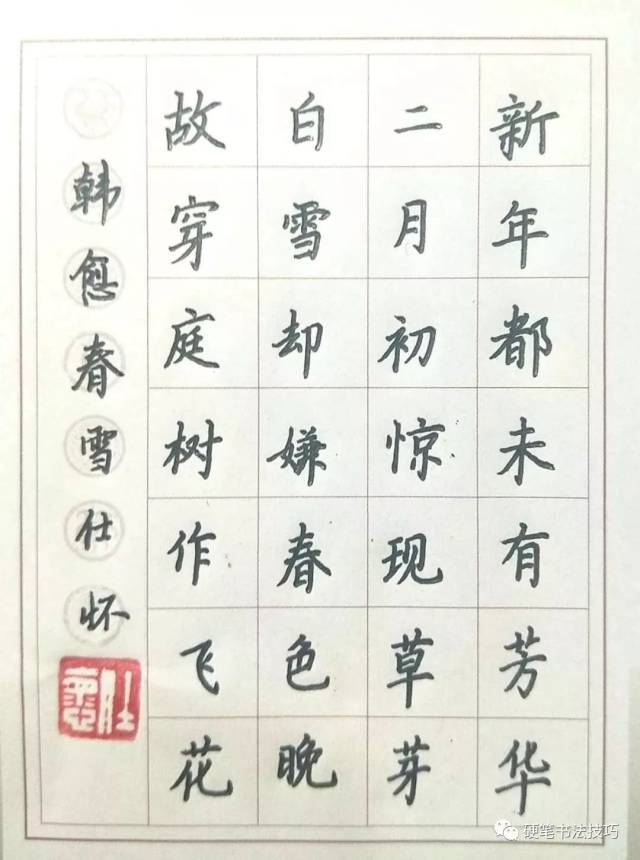 新年都未有芳华
二月初惊现草芽
白雪却嫌春色晚
故穿庭树作飞花
韩愈春雪仕怀
仕怀
硬笔书法技巧